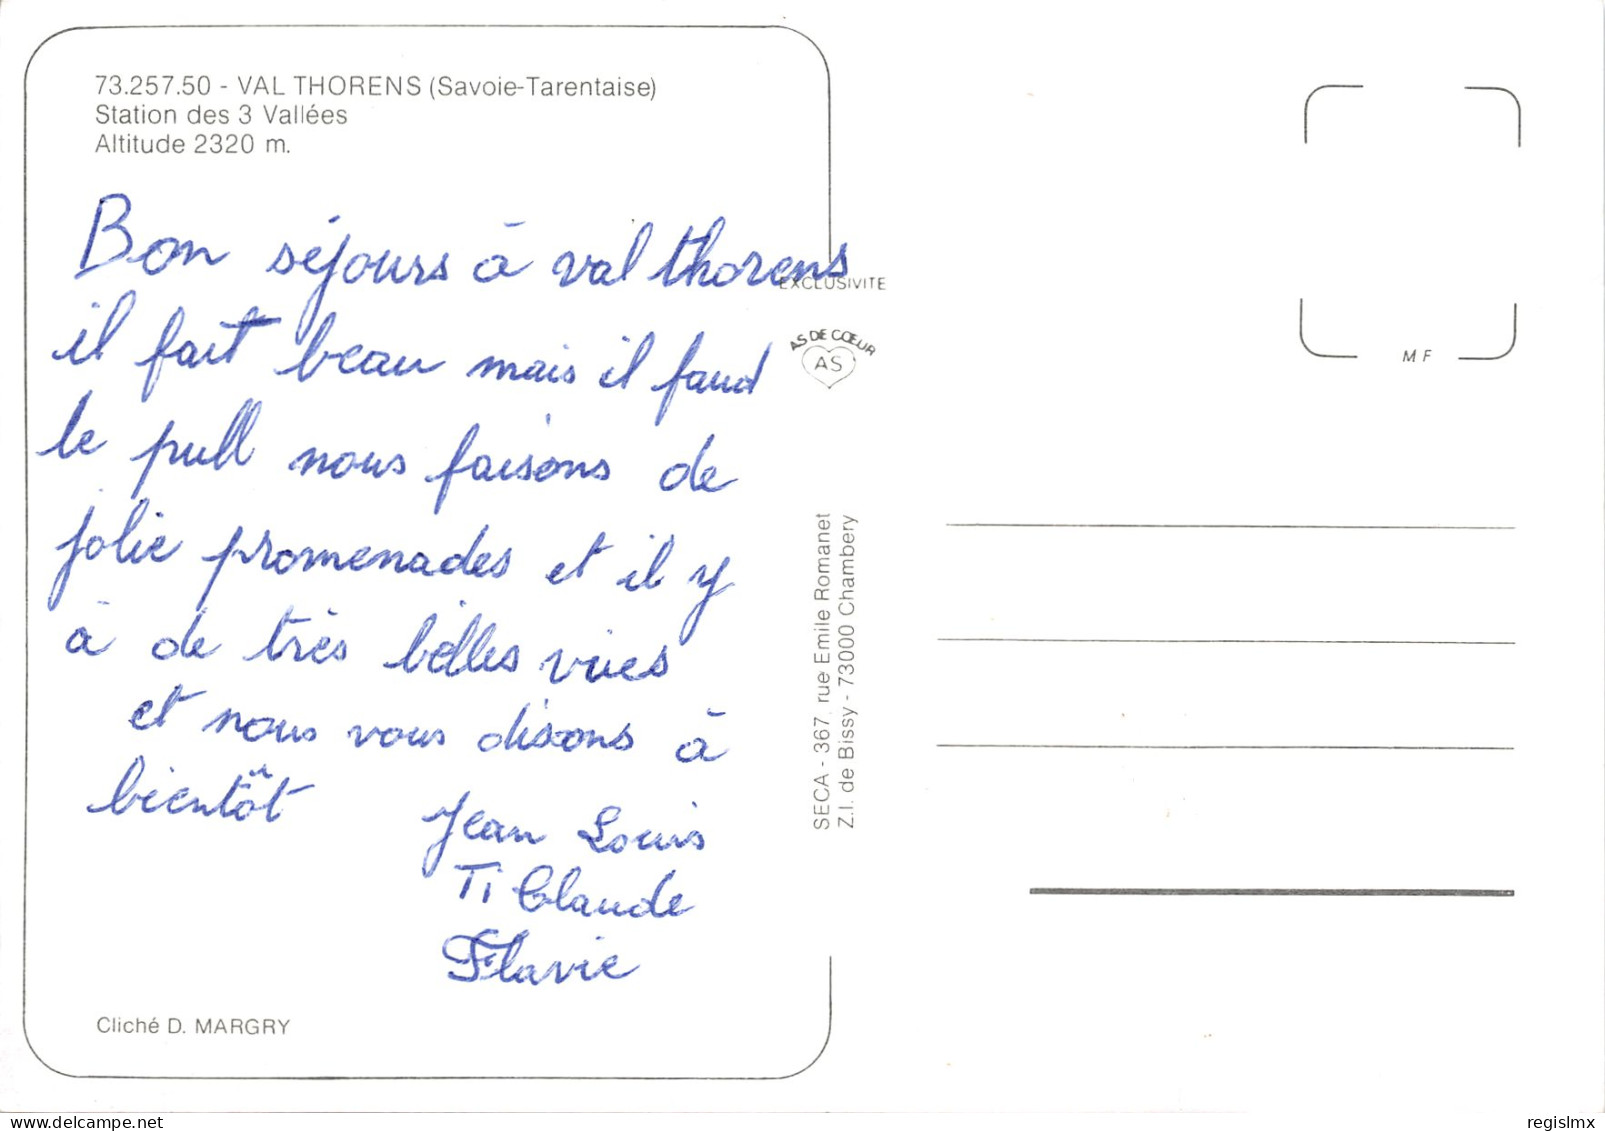 73.257.50 - VAL THORENS (Savoie-Tarentaise)
Station des 3 Vallées
Altitude 2320 m.
Bon séjours à val thorens
il fait beau mais il faud
le pull nous faisons de
jolie promenades et il y
à de très bèlles vues
et nous vous disons à
bientôt
Jean Louis
Ti Claude
Flavie
Cliché D. MARGRY
EXCLUSIVITE
AS DE CŒUR
AS
SECA - 367, rue Emile Romanet
Z.I. de Bissy - 73000 Chambery
MF
delcampe.net
regislmx